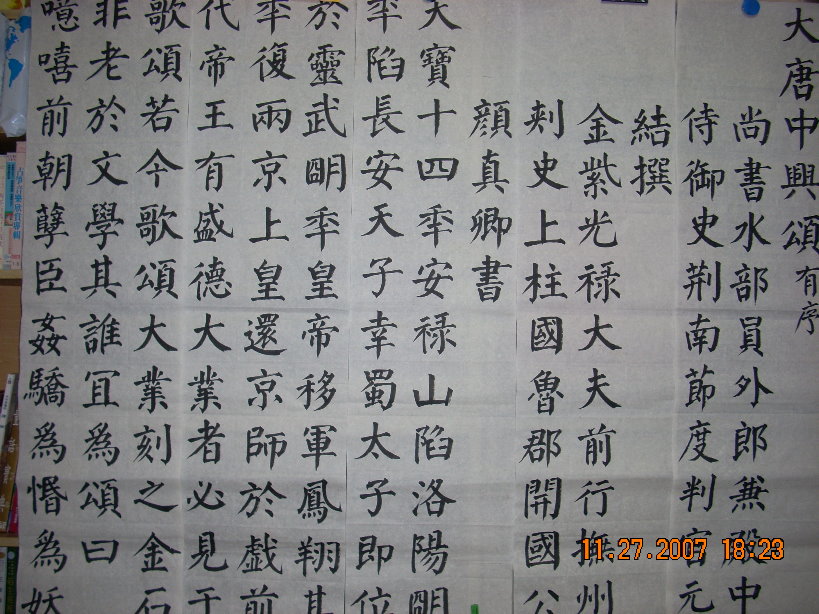 大唐中興頌有序
尚書水部員外郎兼殿中
侍御史荆南節度判官元
結撰
金紫光禄大夫前行撫州
刾史上柱國魯郡開國公
顔真卿書
天寶十四秊安禄山陷洛陽明
秊陷長安天子幸蜀太子即位
於靈武明秊皇帝移軍鳳翔其
秊復兩京上皇還京師於戲前
代帝王有盛德大業者必見于
歌頌若今歌頌大業刻之金石
非老於文學其誰冝為頌曰
噫嘻前朝孽臣姦驕為惛為妖
11.27.2007 18:23
古箏音樂欣賞專輯